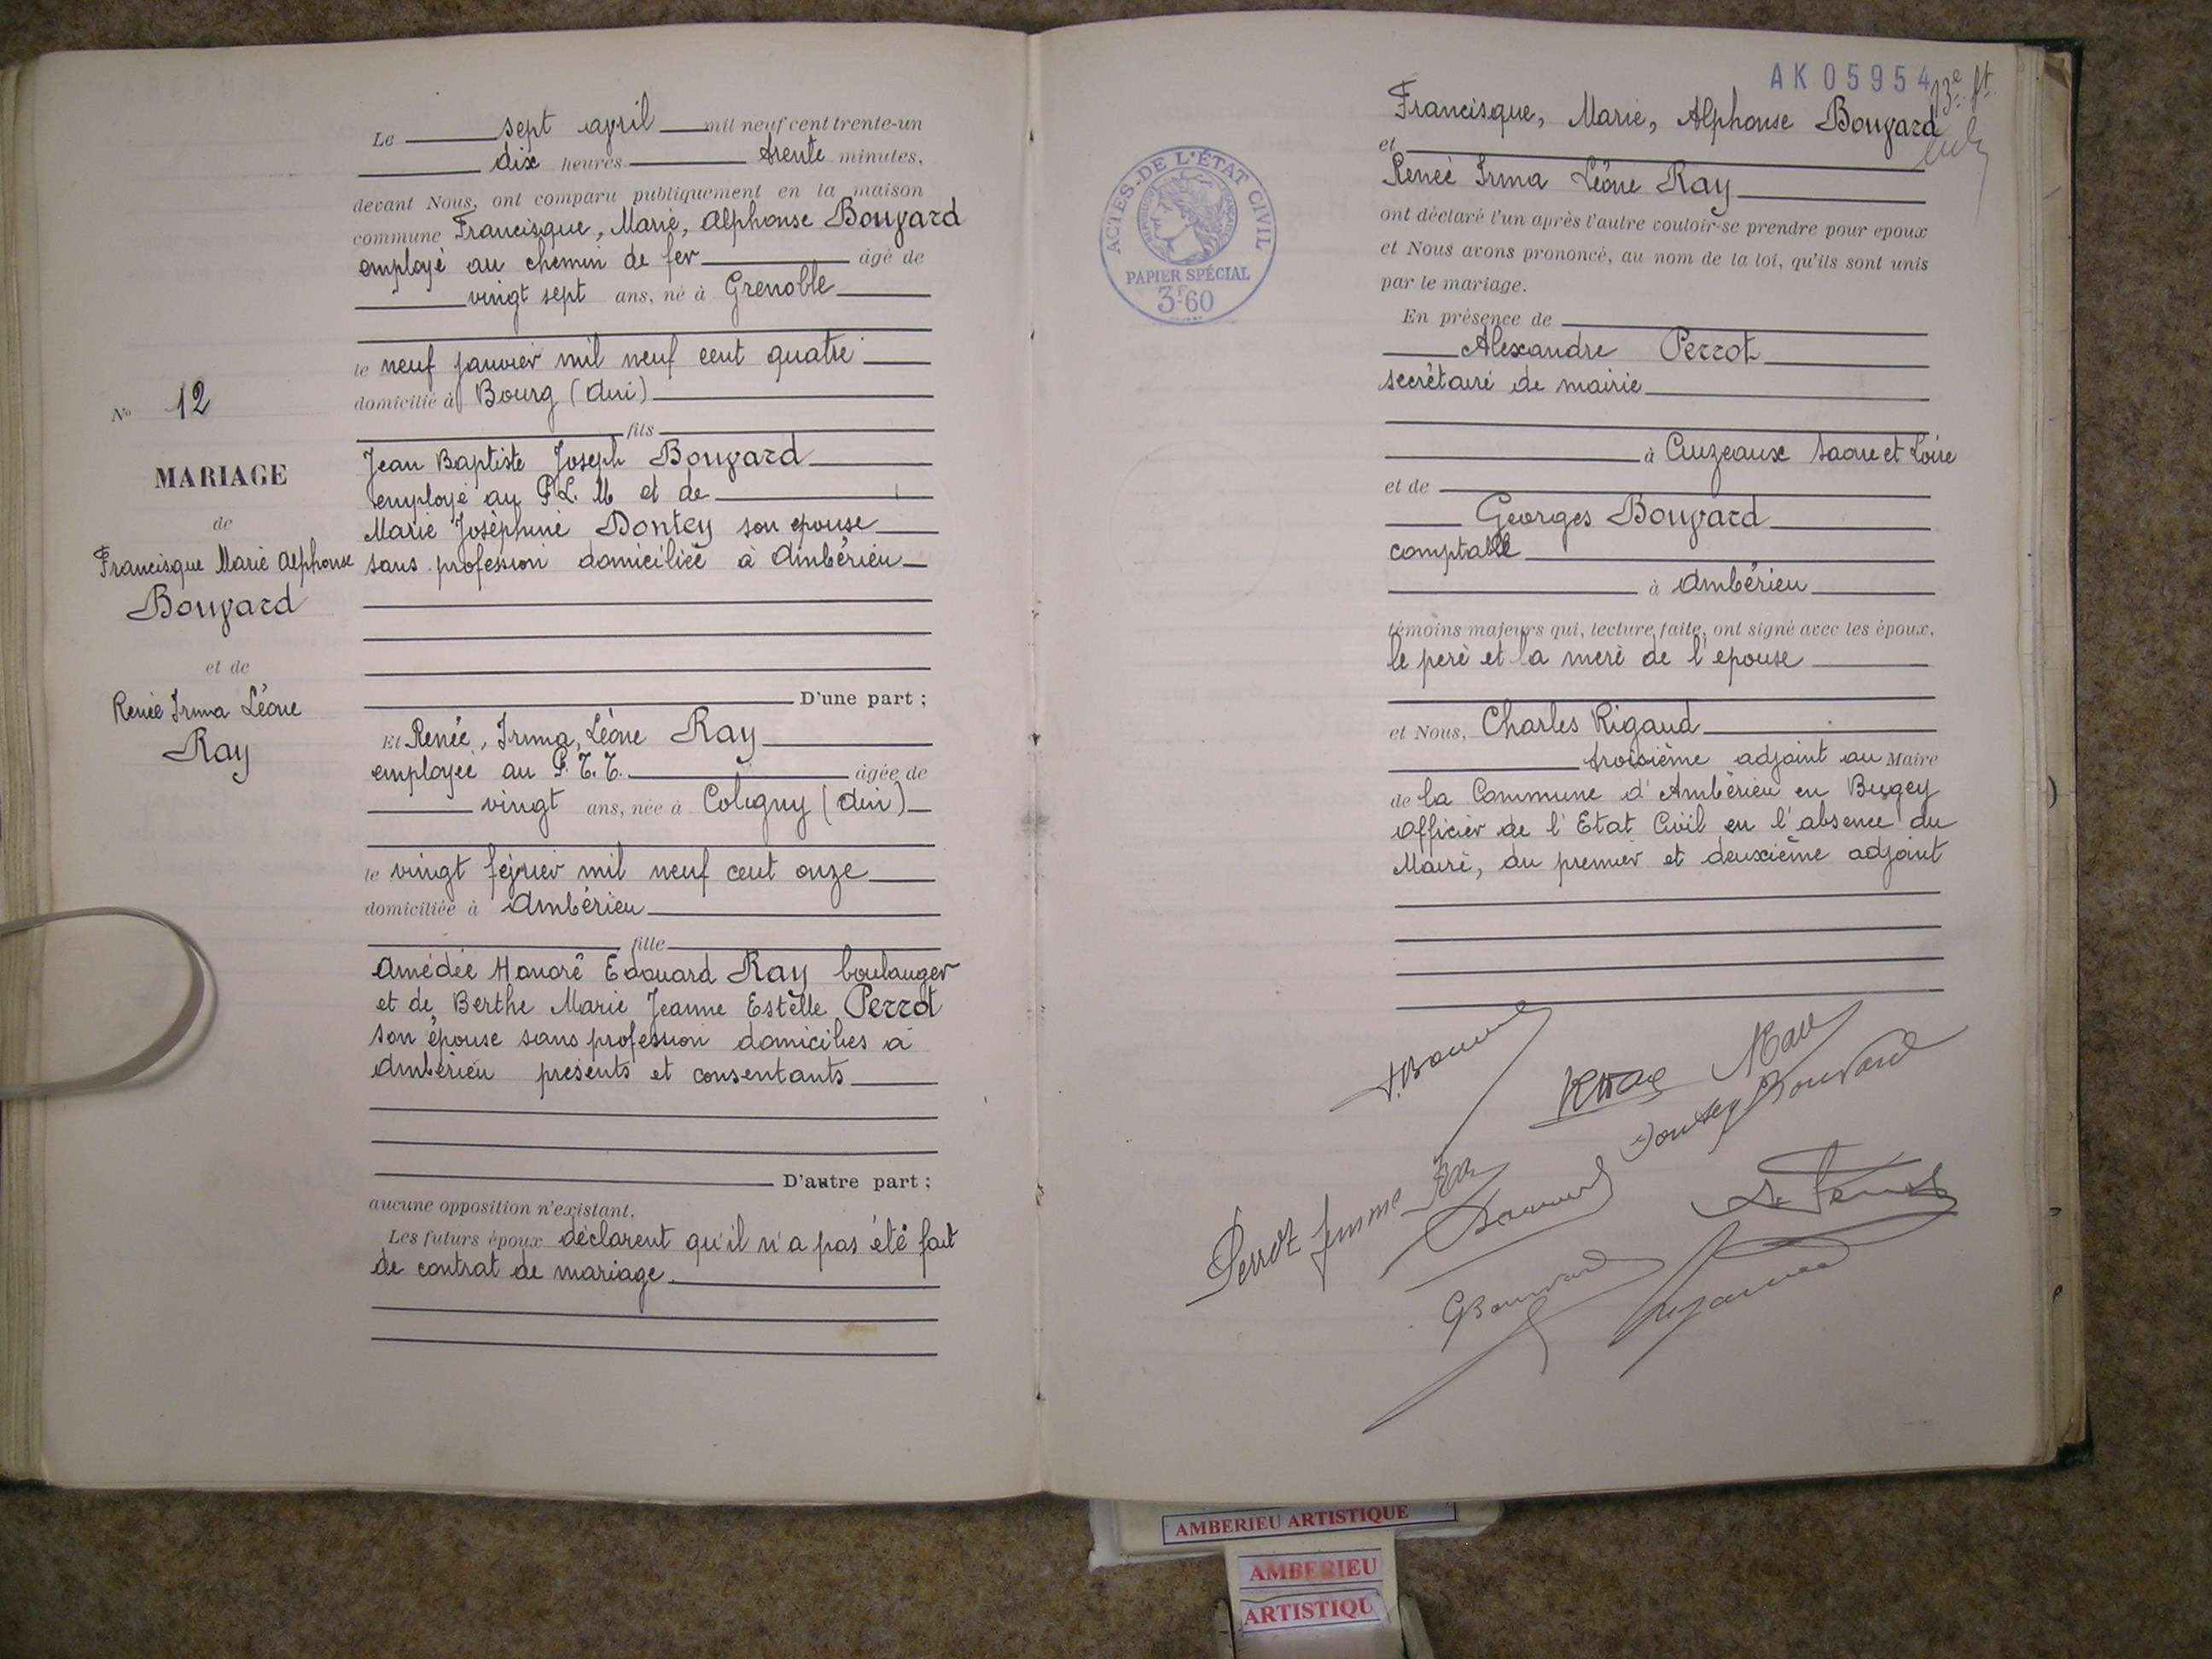 Le sept avril mil neuf cent trente-un
dix heures trente minutes,
devant Nous, ont comparu publiquement en la maison
commune Francisque, Marie, Alphonse Bouvard
employé au chemin de fer âgé de
vingt sept ans, né à Grenoble
le neuf janvier mil neuf cent quatre
domicilié à Bourg (Ain)
fils
Jean Baptiste Joseph Bouvard
employé au P.L.M et de
Marie Joséphine Dontey son epouse
sans profession domiciliée à Ambérieu
D'une part ;
Et Renée, Irma, Léone Ray
employée au P.T.T. âgée de
vingt ans, née à Coligny (Ain)
le vingt février mil neuf cent onze
domiciliée à Ambérieu
fille
Amédée Honoré Edouard Ray boulanger
et de Berthe Marie Jeanne Estelle Perrot
son épouse sans profession domiciliés à
Ambérieu présents et consentants
D'autre part ;
aucune opposition n'existant,
Les futurs époux déclarent qu'il n'a pas été fait
de contrat de mariage
No 12
MARIAGE
de
Francisque Marie Alphonse
Bouvard
et de
Renée Irma Léone
Ray
AK 05954
13e ft
Francisque, Marie, Alphonse Bouvard
et
Renée Irma Léone Ray
ont déclaré l'un après l'autre vouloir se prendre pour époux
et Nous avons prononcé, au nom de la loi, qu'ils sont unis
par le mariage.
En présence de
Alexandre Perrot
secrétaire de mairie
à Cuzeaux Saone et Loire
et de
Georges Bouvard
comptable
à Ambérieu
témoins majeurs qui, lecture faite, ont signé avec les époux,
le père et la mère de l'epouse
et Nous, Charles Rigaud
troisième adjoint au Maire
de la Commune d'Ambérieu en Bugey
officier de l'Etat Civil en l'absence du
Maire, du premier et deuxième adjoint
ACTES DE L'ÉTAT CIVIL
PAPIER SPÉCIAL
3F60
RRay
Dontey Bouvard
Perrot femme Ray
Bouvard
A. Perrot
GBouvard
AMBERIEU ARTISTIQUE
AMBERIEU
ARTISTIQU